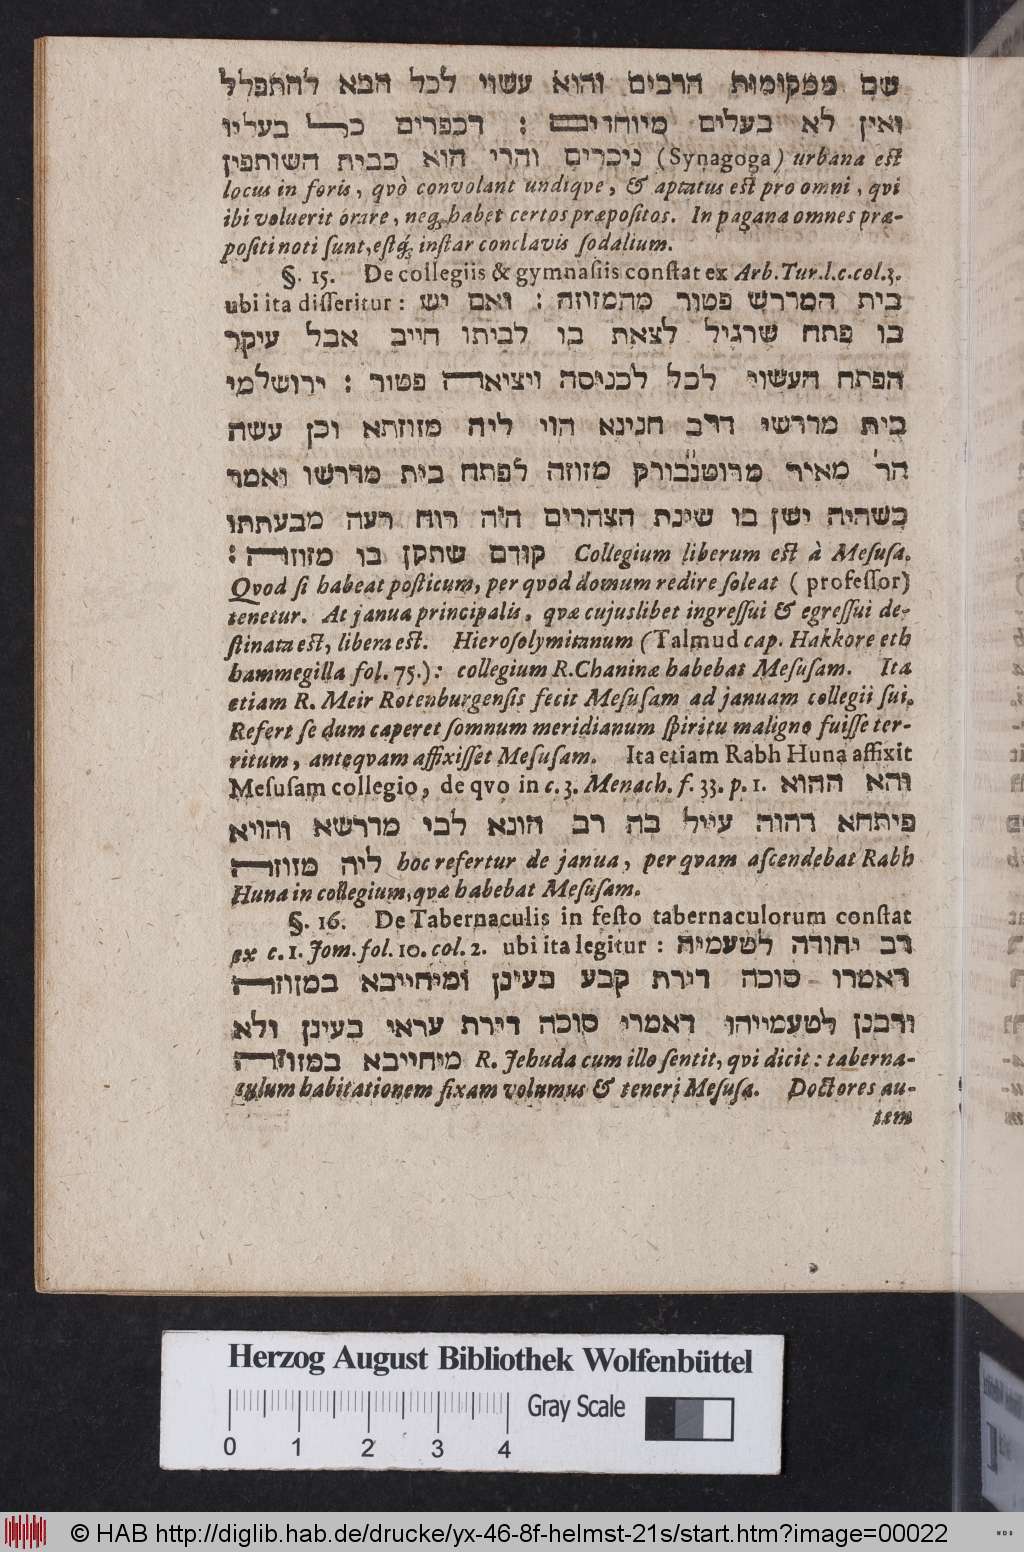 שם ממקומות הרבים והוא עשוי לכל הבא להתפלל
ואין לא בעלים מיוחדים : דכפרים כל בעליו
ניכרים והרי הוא כבית השותפין (Synagoga) urbana est
locus in foris, qvò convolant undiqve, & aptatus est pro omni, qvi
ibi voluerit orare, neq; habet certos præpositos. In pagana omnes præ-
positi noti sunt, estq́; instar conclavis sodalium.
§. 15. De collegiis & gymnasiis constat ex Arb. Tur. l. c. col. 3.
ubi ita disseritur : בית המדרש פטור מהמזוזה : ואם יש
בו פתח שרגיל לצאת בו לביתו חייב אבל עיקר
הפתח העשוי לכל לכניסה ויציאה פטור : ירושלמי
בית מדרשי דרב חנינא הוי ליה מזוזתא וכן עשה
הר׳ מאיר מרוטנבורק מזוזה לפתח בית מדרשו ואמר
כשהיה ישן בו שינת הצהרים היה רוח רעה מבעתתו
קודם שתקן בו מזוזה : Collegium liberum est à Mesusa.
Qvod si habeat posticum, per qvod domum redire soleat ( professor)
tenetur. At janua principalis, qvæ cujuslibet ingressui & egressui de-
stinata est, libera est. Hierosolymitanum (Talmud cap. Hakkore eth
hammegilla fol. 75.): collegium R. Chaninæ habebat Mesusam. Ita
etiam R. Meir Rotenburgensis fecit Mesusam ad januam collegii sui.
Refert se dum caperet somnum meridianum spiritu maligno fuisse ter-
ritum, anteqvam affixisset Mesusam. Ita etiam Rabh Huna affixit
Mesusam collegio, de qvo in c. 3. Menach. f. 33. p. 1. והא ההוא
פיתחא דהוה עייל בה רב הונא לבי מדרשא והויא
ליה מזוזה hoc refertur de janua, per qvam ascendebat Rabh
Huna in collegium, qvæ habebat Mesusam.
§. 16. De Tabernaculis in festo tabernaculorum constat
ex c. 1. Jom. fol. 10. col. 2. ubi ita legitur : רב יהודה לטעמיה
דאמרו סוכה דירת קבע בעינן ומיחייבא במזוזה
ורבנן לטעמייהו דאמרי סוכה דירת עראי בעינן ולא
מיחייבא במזוזה R. Jehuda cum illo sentit, qvi dicit : taberna-
culum habitationem fixam volumus & teneri Mesusa. Doctores au-
tem
Herzog August Bibliothek Wolfenbüttel
Gray Scale
0 1 2 3 4
© HAB http://diglib.hab.de/drucke/yx-46-8f-helmst-21s/start.htm?image=00022